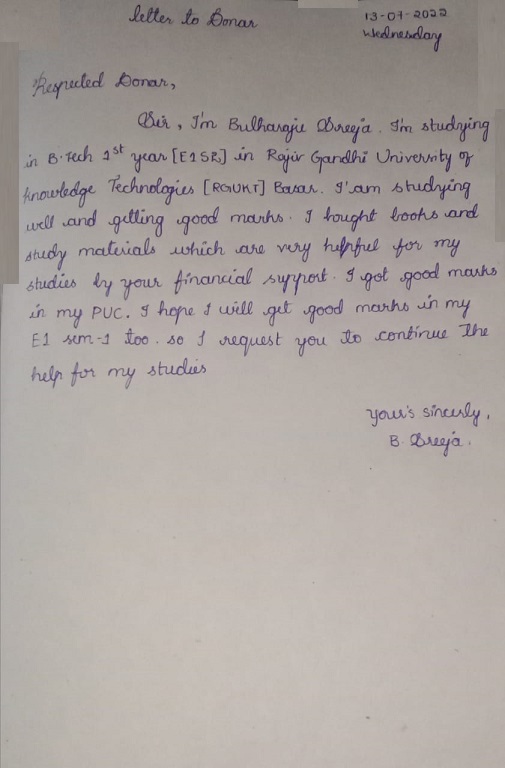 letter to Donar
13-07-2022
Wednesday
Respected Donar,
Sir, I'm Bulharaju Sreeja. I'm studying
in B.Tech 1st year [E1SR] in Rajiv Gandhi University of
knowledge Technologies [RGUKT] Basar. I'am studying
well and getting good marks. I bought books and
study materials which are very helpful for my
studies by your financial support. I got good marks
in my PUC. I hope I will get good marks in my
E1 sem-1 too. so I request you to continue The
help for my studies
your's sincerly,
B. Sreeja.